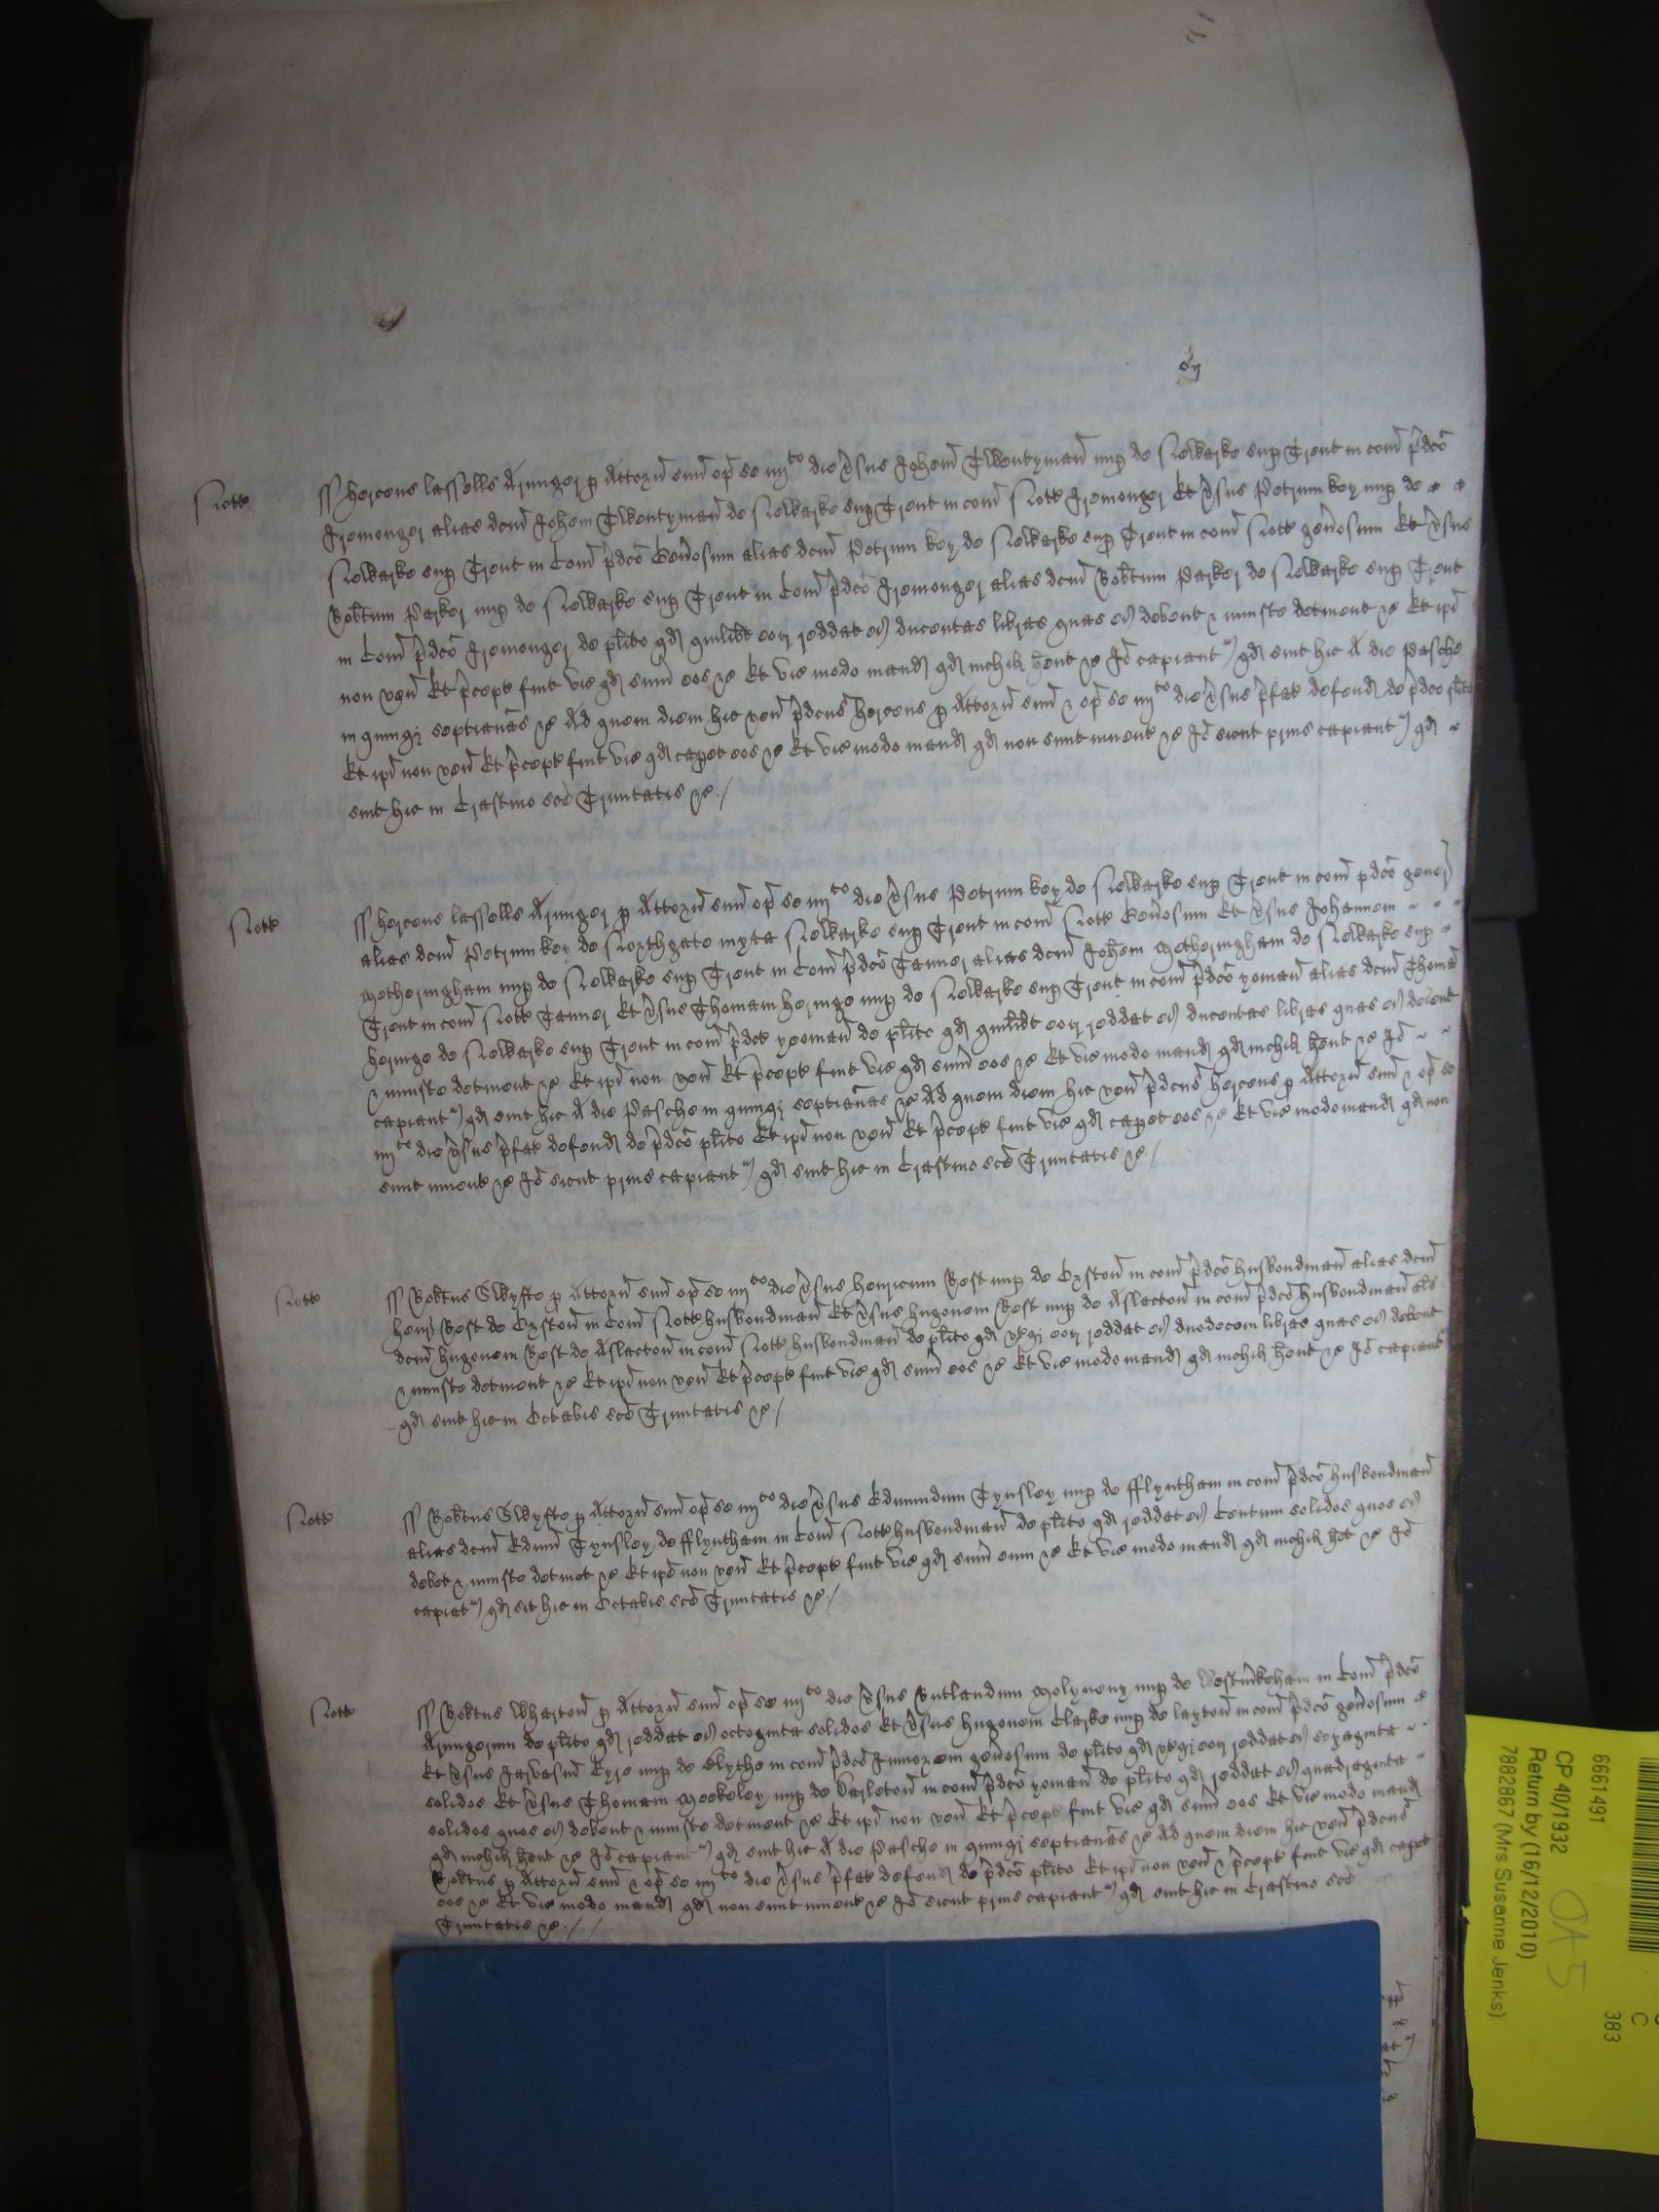 Nott ss Hercons lassells Armiger p Attorn suu op se iiijto die vsus Johem Twentyman nup de Newarke sup Trent in com pdco
Iremonger alias dcm Johem Twentyman de Newarke sup Trent in com Nott Iremonger Et vsus Petrum key nup de
Newarke sup Trent in Com pdco Genosum alias dcm Petrum key de Newarke sup Trent in com Nott genosum Et vsus
Robtum Parker nup de Newarke sup Trent in Com pdco Iremonger alias dcm Robtum Parker de Newarke sup Trent
in Com pdco Iremonger de plito qd quilibt eor reddat ei ducentas libras quas ei debent & iniuste detinent &c Et ipi
non ven Et pcept fuit vic qd sum eos &c Et vic modo mand qd nichil hent &c Io capiant qd sint hic A die Pasche
in quinqz septianas &c Ad quem diem hic ven pdcus Hercons p Attorn suu & op se iiijto die vsus pfat defend de pdco plito
Et ipi non ven Et pcept fuit vic qd capet eos &c Et vic modo mand qd non sunt invent &c Io sicut prius capiant qd
sint hic in Crastino sce Trinitatis &c /
Nott ss Hercons lassells Armiger p Attorn suu op se iiijto die vsus Petrum key de Newarke sup Trent in com pdco gener
alias dcm Petrum key de Northgate iuxta Newarke sup Trent in com Nott Genosum Et vsus Johannem
Metheringham nup de Newarke sup Trent in Com pdco Tanner alias dcm Johem Metheringham de Newarke sup
Trent in com Nott Tanner Et vsus Thomam heringe nup de Newarke sup Trent in com pdco yoman alias dcm Thoma
heringe de Newarke sup Trent in com pdct yeoman de plito qd quilibt eor reddat ei ducentas libras quas ei debent
& iniuste detinent &c Et ipi non ven Et pcept fuit vic qd sum eos &c Et vic modo mand qd nichil hent &c Io
capiant qd sint hic A die Pasche in quinqz septianas &c Ad quem diem hic ven pdcus Hercons p Attorn suu & op se
iiijto die vsus pfat defend de pdco plito Et ipi non ven Et pcept fuit vic qd capet eos &c Et vic modo mand qd non
sunt invent &c Io sicut prius capiant qd sint hic in Crastino sce Trinitatis &c /
Nott ss Robtus Swyfte p Attorn suu op se iiijto die vsus henricum Rost nup de Oxston in com pdco husbondman alias dcm
henr Rost de Oxston in Com Nott husbondman Et vsus hugonem Rost nup de Aslacton in com pdco husbondman als
dcm hugonem Rost de Aslacton in com Nott husbondman de plito qd utqz eor reddat ei duodecem libras quas ei debent
& iniuste detinent &c Et ipi non ven Et pcept fuit vic qd sum eos &c Et vic modo mand qd nichil hent &c Io capiant
qd sint hic in Octabis sce Trinitatis &c /
Nott ss Robtus Swyfte p Attorn suu op se iiijto die vsus Edmundum Tynsley nup de Fflyntham in com pdco husbondman
alias dcm Edmu Tynsley de Fflyntham in Com Nott husbondman de plito qd reddat ei Centum solidos quos ei
debet & iniuste detinet &c Et ipe non ven Et pcept fuit vic qd sum eum &c Et vic modo mand qd nichil het &c Io
capiat qd sit hic in Octabis sce Trinitatis &c /
Nott ss Robtus Wharton p Attorn suu op se iiijto die vsus Rutlandum Molyneux nup de in Com pdco
Armigerum de plito qd reddat ei octoginta solidos Et vsus hugonem Clarke nup de laxton in com pdco genosum
Et vsus Jarvasiu Eyre nup de Blythe in com pdco Juniorem genosum de plito qd utqz eor reddat ei sexaginta
solidos Et vsus Thomam nup de Carleton in com pdco yoman de plito qd reddat ei quadraginta
solidos quos ei debent & iniuste detinent &c Et ipi non ven Et pcept fuit vic qd sum eos Et vic modo mand
qd nichil hent &c Io capiant qd sint hic A die Pasche in quinqz septianas &c Ad quem diem hic ven pdcus
Robtus p Attorn suu & op se iiijto die vsus pfat defend de pdco plito Et ipi non ven & pcept fuit vic qd capet
eos &c Et vic modo mand qd non sunt invent &c Io sicut prius capiant qd sint hic in Crastino sce
Trinitatis &c //
6661491
CP 40/1932
Return by (16/12/2010)
7882867 (Mrs Susanne Jenks)
OA5
C
383